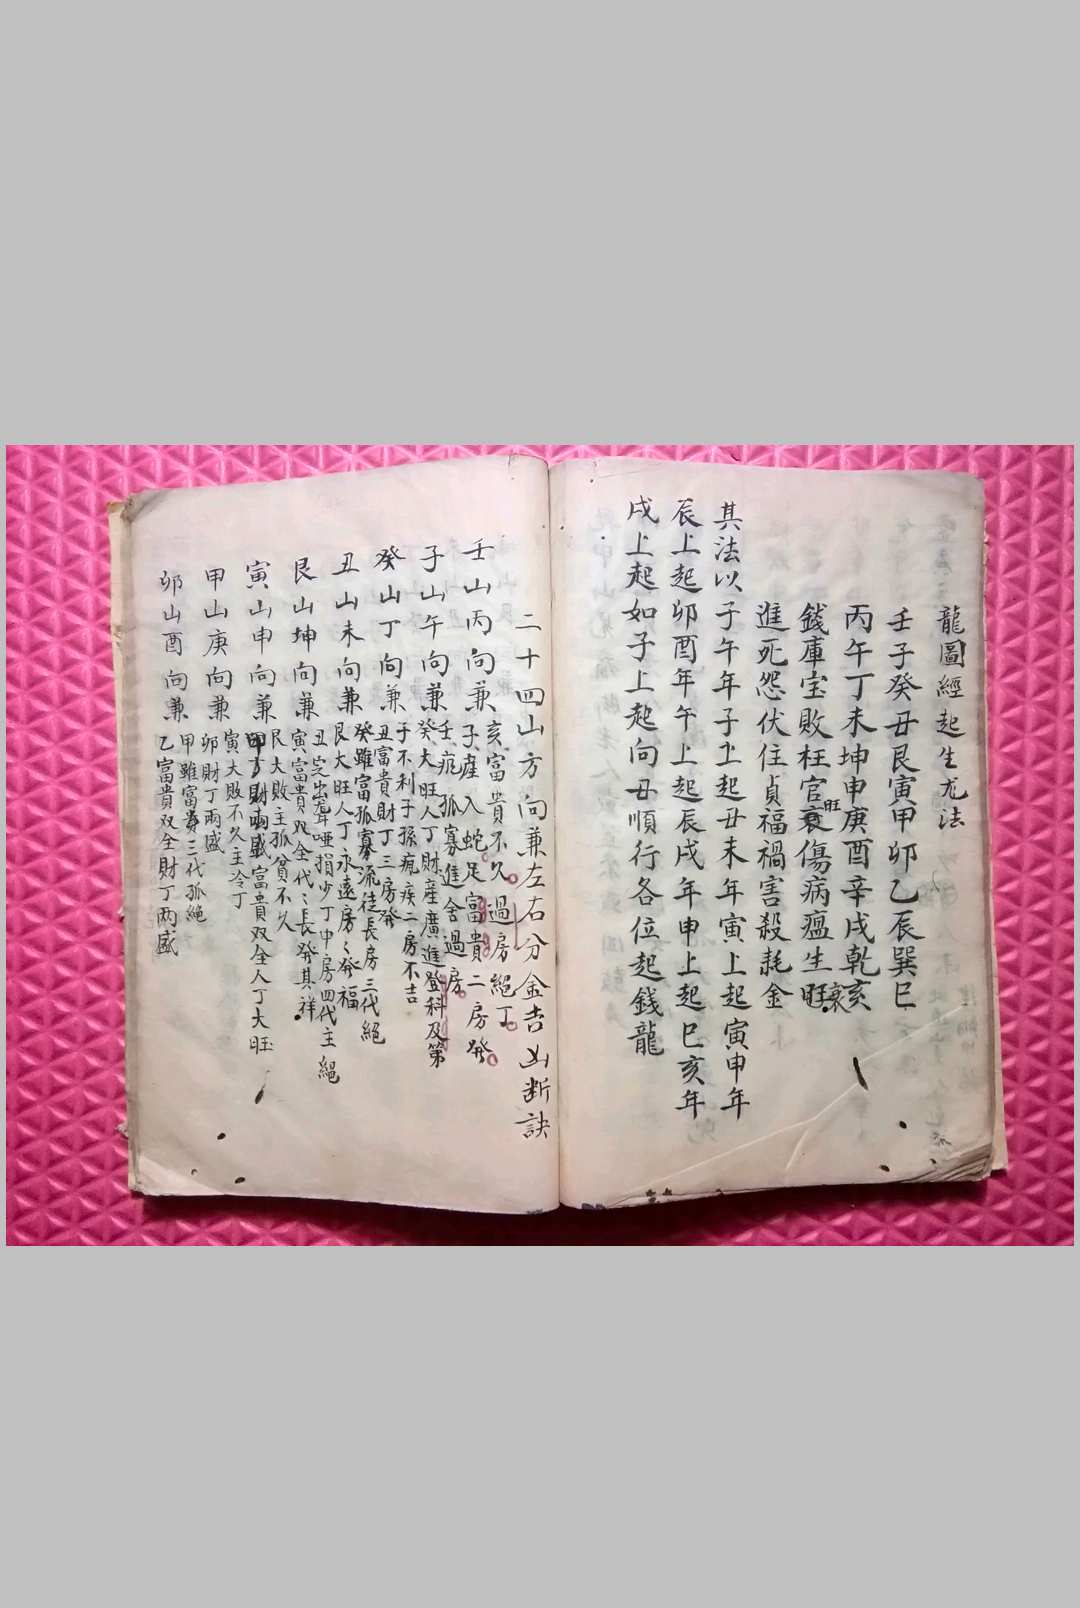 龍圖經起生尤法
壬子癸丑艮寅甲卯乙辰巽巳
丙午丁未坤申庚酉辛戌乾亥
錢庫宝敗枉官衰旺傷病瘟生旺衰
進死怨伏住貞福禍害殺耗金
其法以子午年子上起丑未年寅上起寅申年
辰上起卯酉年午上起辰戌年申上起巳亥年
戌上起如子上起向丑順行各位起錢龍
二十四山方向兼左右分金吉凶断訣
壬山丙向兼
亥富貴不久過房絕丁
子産入蛇足富貴二房發
子山午向兼
壬孤寡進舍過房
癸大旺人丁財産廣進登科及第
癸山丁向兼
子不利子孫瘋疾二房不吉
丑富貴財丁三房發
丑山未向兼
癸雖富孤寡流徒長房三代絕
艮大旺人丁永遠房々發福
艮山坤向兼
丑定出聾啞損少丁中房四代主絕
寅富貴双全代々長發其祥
寅山申向兼
艮大敗主孤貧不久
甲方財兩盛富貴双全人丁大旺
甲山庚向兼
寅大敗不久主冷丁
卯財丁兩盛
卯山酉向兼
甲雖富貴三代孤絕
乙富貴双全財丁兩盛